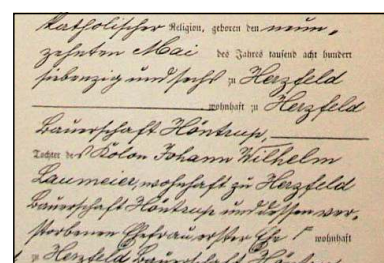 katholischer Religion, geboren den neun-
zehnten Mai des Jahres tausend acht hundert
siebenzig und sechs zu Herzfeld
wohnhaft zu Herzfeld
Bauerschaft Höntrup,
Tochter des Kolon Johann Wilhelm
Laumeier, wohnhaft zu Herzfeld
Bauerschaft Höntrup und dessen ver-
storbenen Ehefrau erster Ehe wohnhaft
zu Herzfeld Bauerschaft Höntrup